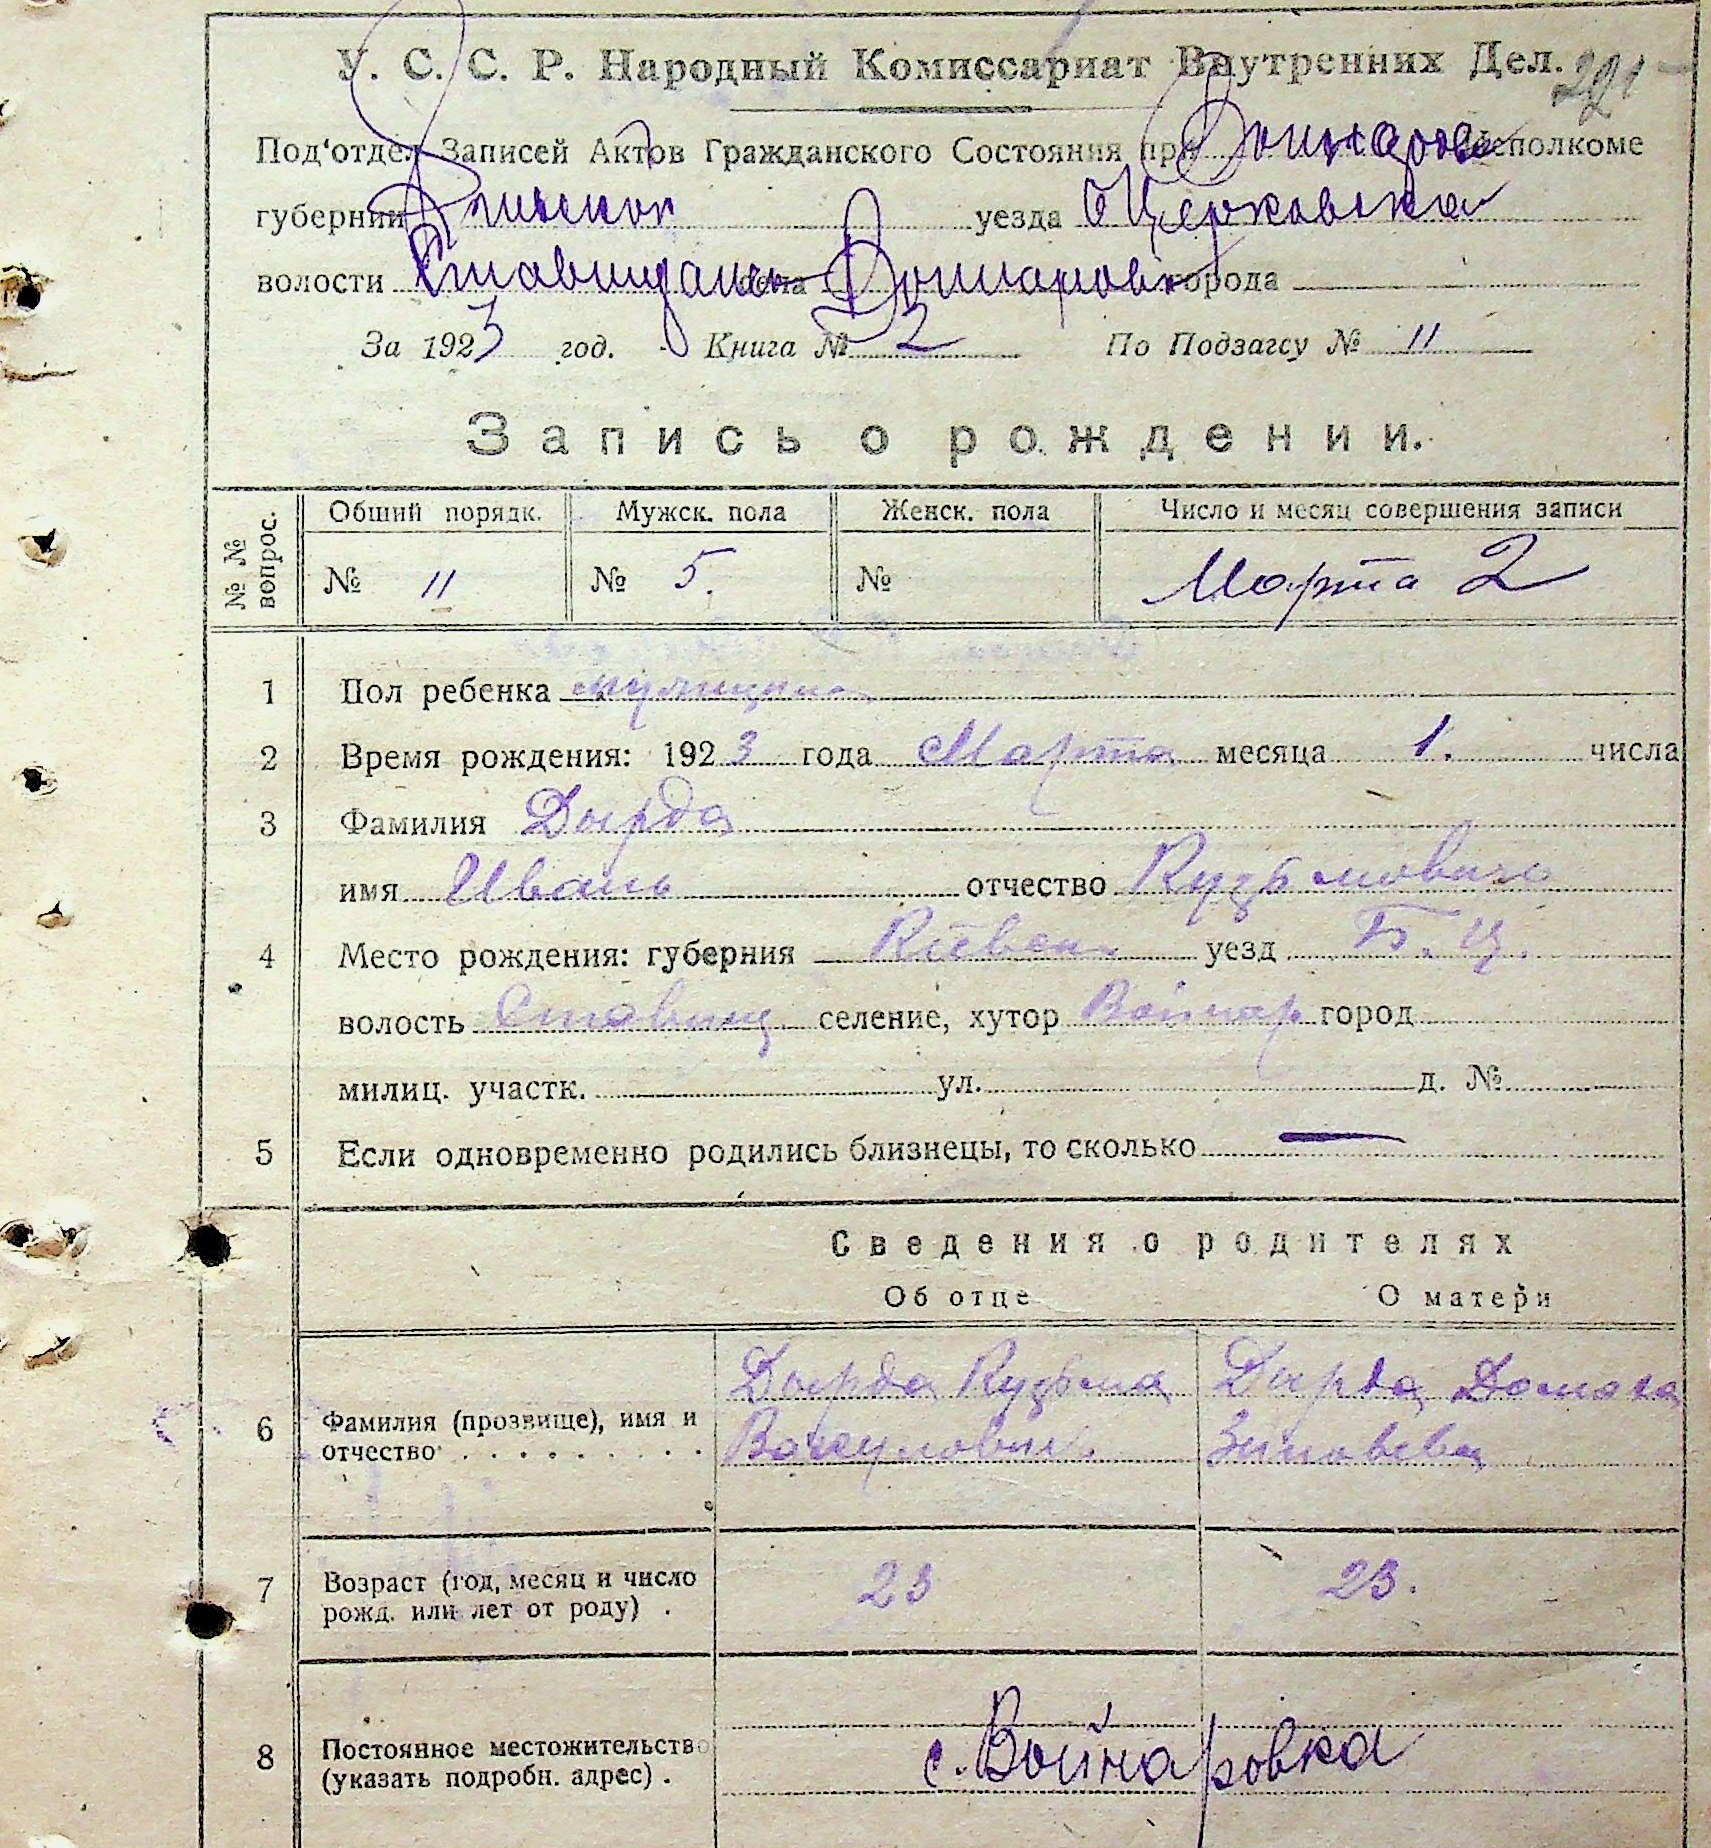 У. С. С. Р. Народный Комиссариат Внутренних Дел. 221
Под'отдел Записей Актов Гражданского Состояния при Исполкоме
губернии уезда
волости села города
За 1923 год. Книга № 2 По Подзагсу № 11
Запись о рождении.
№ № вопрос. Общий порядк. Мужск. пола Женск. пола Число и месяц совершения записи
№ 11 № 5. № Марта 2
1 Пол ребенка
2 Время рождения: 1923 года Марта месяца 1. числа
3 Фамилия Дырда
имя Иванъ отчество Кузьмовичъ
4 Место рождения: губерния Кіевск. уезд Б. Ц.
волость Ставищ. селение, хутор Войнар. город
милиц. участк. ул. д. №
5 Если одновременно родились близнецы, то сколько —
Сведения о родителях
Об отце О матери
6 Фамилия (прозвище), имя и Дырда Кузьма Дырда Домаха
отчество
7 Возраст (год, месяц и число 23 23.
рожд. или лет от роду) .
8 Постоянное местожительство с. Войнаровка
(указать подробн. адрес) .